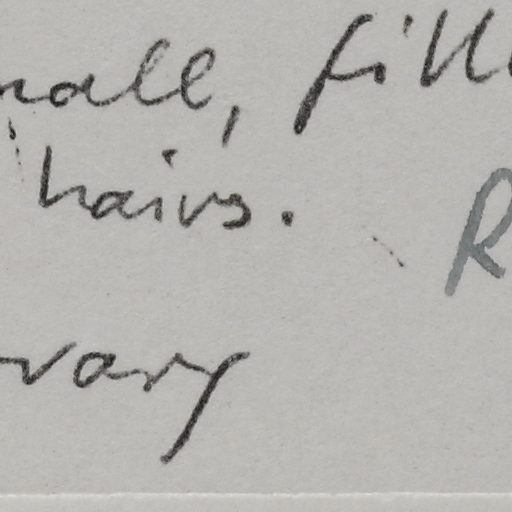 mall, fill
hairs.
R
vary